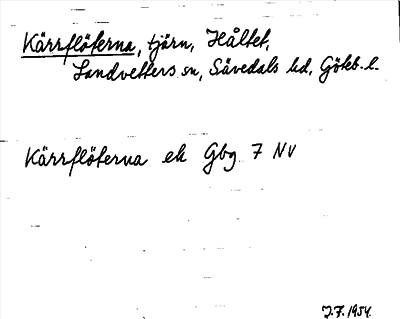 Kärrflöterna, tjärn, Håltet,
Landvetters sn, Sävedals hd, Göteb. l.
Kärrflöterna ek Gbg 7 NV
J.F. 1954.